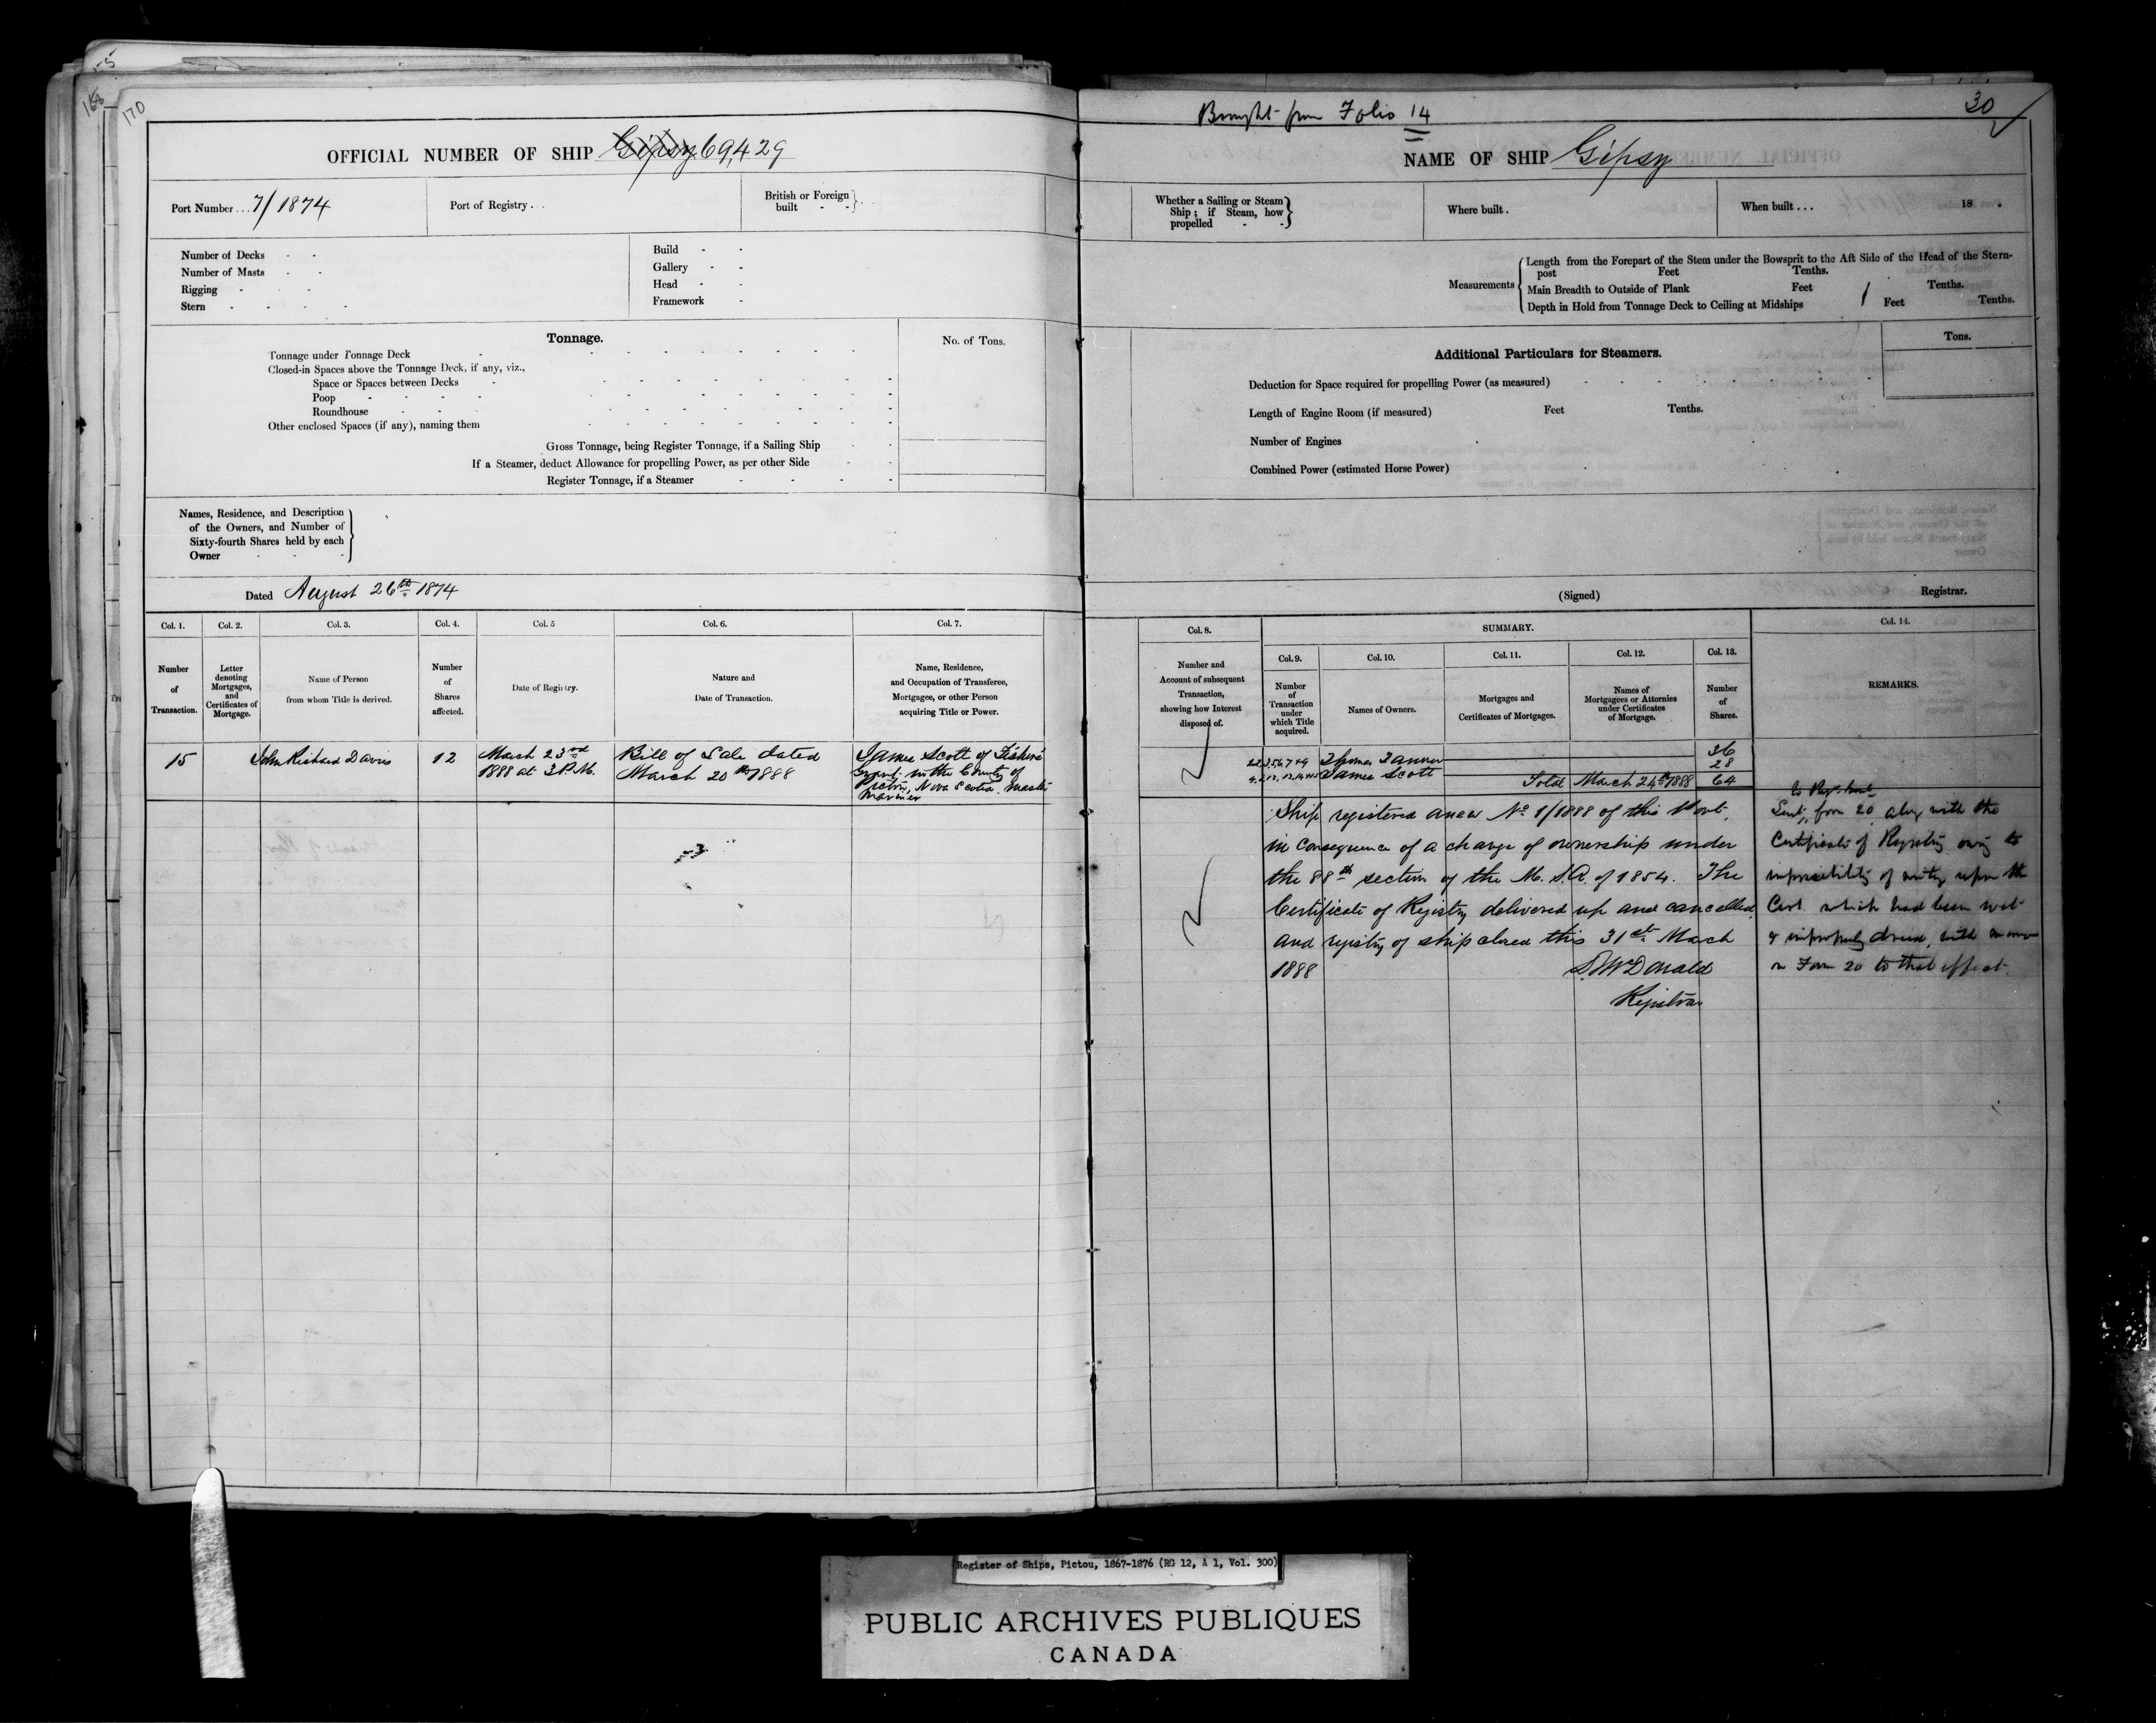 170
OFFICIAL NUMBER OF SHIP Gipsy 69,429
Port Number ... 7/1874
Port of Registry ...
British or Foreign
built - -
Number of Decks - -
Number of Masts - -
Rigging - - -
Stern - - - - -
Build - -
Gallery - -
Head - -
Framework -
Tonnage.
No. of Tons.
Tonnage under Tonnage Deck
Closed-in Spaces above the Tonnage Deck, if any, viz.,
Space or Spaces between Decks
Poop
Roundhouse
Other enclosed Spaces (if any), naming them
Gross Tonnage, being Register Tonnage, if a Sailing Ship
If a Steamer, deduct Allowance for propelling Power, as per other Side
Register Tonnage, if a Steamer
Names, Residence, and Description
of the Owners, and Number of
Sixty-fourth Shares held by each
Owner
Dated August 26th 1874
Col. 1.
Number
of
Transaction.
Col. 2.
Letter
denoting
Mortgages,
and
Certificates of
Mortgage.
Col. 3.
Name of Person
from whom Title is derived.
Col. 4.
Number
of
Shares
affected.
Col. 5
Date of Registry.
Col. 6.
Nature and
Date of Transaction.
Col. 7.
Name, Residence,
and Occupation of Transferee,
Mortgagee, or other Person
acquiring Title or Power.
15
John Richard Davis
12
March 23rd
1888 at 3 P.M.
Bill of Sale dated
March 20th 1888
James Scott of Fisher's
Grant in the County of
Pictou, Nova Scotia. Master
Mariner
Brought from Folio 14
30
NAME OF SHIP Gipsy
Whether a Sailing or Steam
Ship; if Steam, how
propelled - -
Where built .
When built ...
18 .
Measurements
Length from the Forepart of the Stem under the Bowsprit to the Aft Side of the Head of the Stern-
post Feet Tenths.
Main Breadth to Outside of Plank Feet Tenths.
Depth in Hold from Tonnage Deck to Ceiling at Midships Feet Tenths.
Additional Particulars for Steamers.
Tons.
Deduction for Space required for propelling Power (as measured)
Length of Engine Room (if measured) Feet Tenths.
Number of Engines
Combined Power (estimated Horse Power)
(Signed) Registrar.
Col. 8.
Number and
Account of subsequent
Transaction,
showing how Interest
disposed of.
SUMMARY.
Col. 9.
Number
of
Transaction
under
which Title
acquired.
Col. 10.
Names of Owners.
Col. 11.
Mortgages and
Certificates of Mortgages.
Col. 12.
Names of
Mortgagees or Attornies
under Certificates
of Mortgage.
Col. 13.
Number
of
Shares.
Col. 14.
REMARKS.
Thomas Tanner 36
James Scott 28
Total March 24th 1888 64
Ship registered anew No 1/1888 of this Port,
in consequence of a change of ownership under
the 88th section of the M. S. A. of 1854. The
Certificate of Registry delivered up and cancelled
and registry of ship closed this 31st March
1888
D. McDonald
Registrar
Sent form 20 along with the
Certificate of Registry owing to
impossibility of writing upon the
Cert. which had been wet
& improperly dried, with
on Form 20 to that effect.
Register of Ships, Pictou, 1867-1876 (RG 12, A 1, Vol. 300)
PUBLIC ARCHIVES PUBLIQUES
CANADA